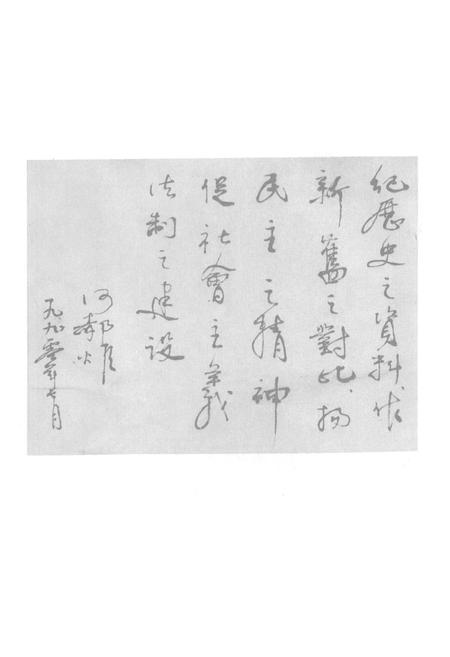 纪歷史之資料作
新舊之對比,扬
民主之精神
促社會主義
法制之建设
一九九零年七月